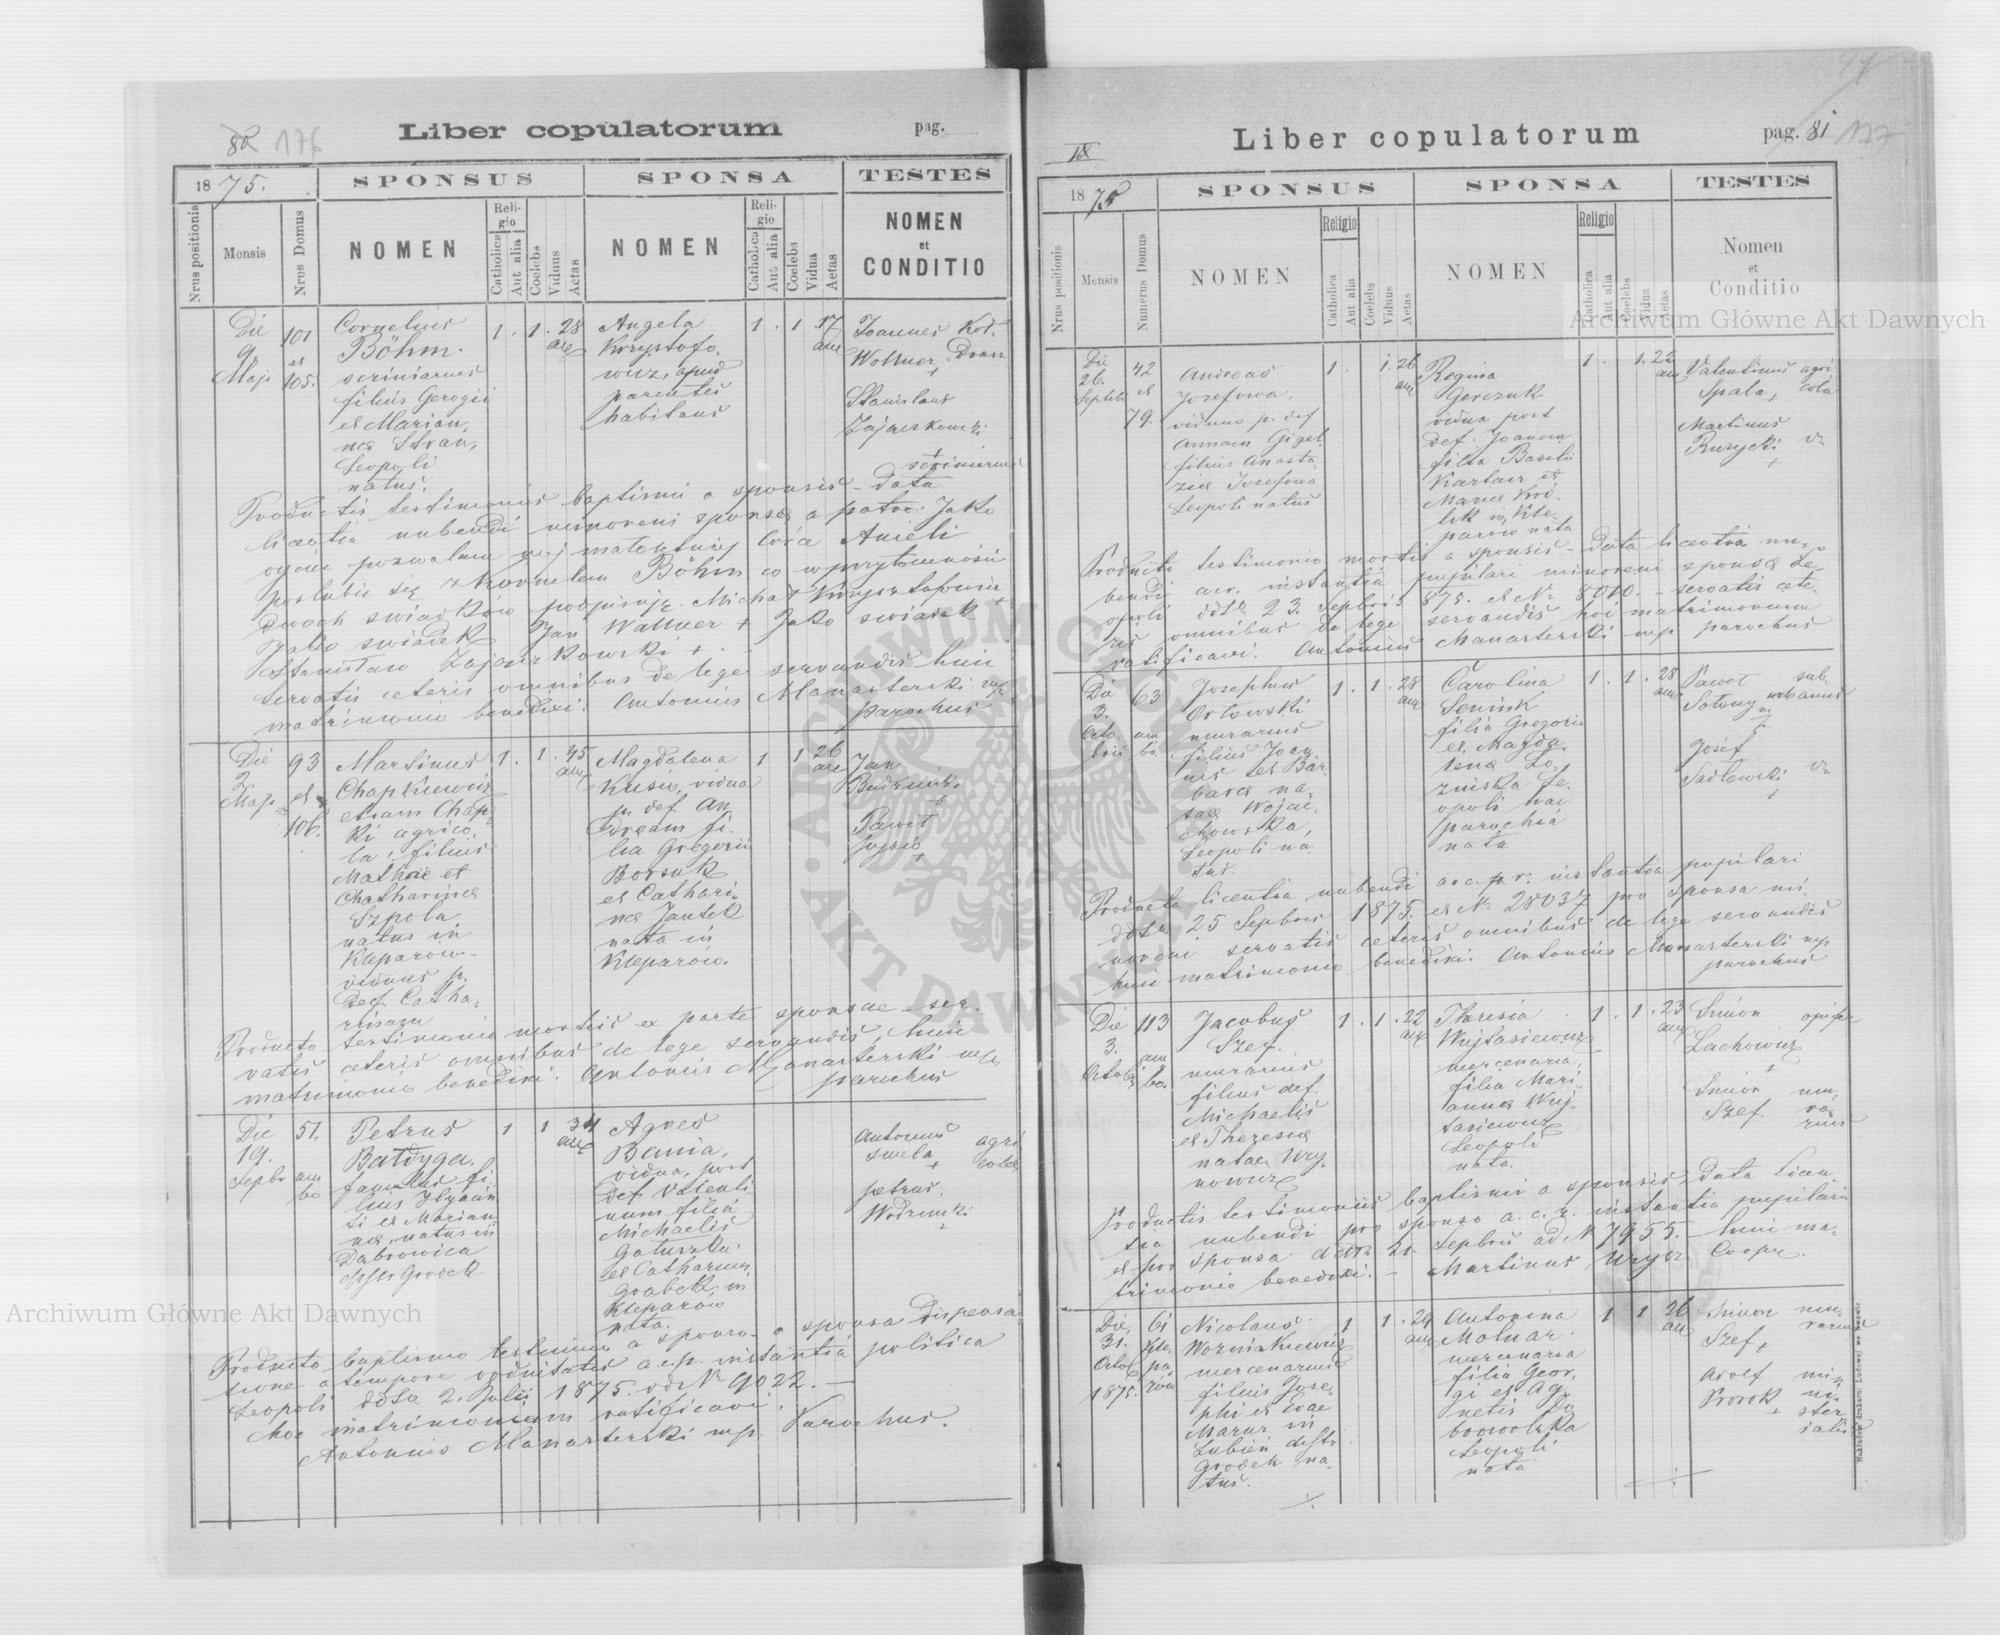 80 176
Liber copulatorum
pag.
1875.
SPONSUS
SPONSA
TESTES
Nrus positionis
Mensis
Nrus Domus
NOMEN
Religio
Catholica
Aut alia
Coelebs
Viduus
Aetas
NOMEN
Religio
Catholica
Aut alia
Coelebs
Vidua
Aetas
NOMEN
et
CONDITIO
Die
9
Maji
101
et
105.
Cornelius
Böhm.
scriniarius
filius Georgii
et Marian,
nae Stran,
Leopoli
natus.
1. 1. 28
Angela
Krzysztofo,
wicz, apud
parentes
habitans
1. 1 17
Joannes
Wollner +
Stanislaus
Zajączkowski
+
scriniarius
Productis testimoniis baptismi a sponsis - data
licentia nubendi minoreni sponsae a patre: Jako
ojciec pozwalam mej małoletniej córce Anieli
poślubić się z Kornelem Böhm co w przytomności
dwóch świadków podpisuję. Michał Krzysztofowicz
Jako świadek Jan Wallner + Jako świadek +
Stanisław Zajączkowski +.
servatis ceteris omnibus de lege servandis huic
matrimonio benedixi. Antonius Manasterski mp
parochus
Die
2
Maji
93
et
106.
Martinus
Chapkiewicz
etiam Chap,
ki agrico,
la, filius
Mathiae et
Chatharinae
Szpola
natus in
Kleparow
viduus p.
def. Catha,
rinam
1. 1. 45
Magdalena
Kusiw, vidua
p. def An,
dream fi,
lia Gregorii
Borsuk
et Cathari,
nae Jantek
nata in
Kleparow.
1 1 26
Jan
Budzinski
+
Paweł
+
Producto testimonio mortis ex parte sponsae ser,
vatis ceteris omnibus de lege servandis, huic
matrimonio benedixi. Antonius Manasterski mp
parochus
Die
19.
Septbr
51.
am
bo
Petrus
Bałdyga.
famulus fi,
lius Hyacin
ti et Marian
nae, natus in
Dąbrowica
distr Grodek
1 1 34
Agnes
Bania,
vidua, post
def. Valenti
num filia
Michaelis
Gałuszka
et Catharina
Grabek, in
Kleparow
nata.
Antonius
+
agri
colae
Petrus
+
Producto baptismo testimonio a sponso, a sponsa dispensa
tione a tempore viduitatis a.c.p. instantia politica
Leopoli ddto 2. Julii 1875. ad Nr 9022. —
hoc matrimonium ratificavi.
Antonius Manasterski mp. Parochus.
Liber copulatorum
pag. 81
177
IX
1875
SPONSUS
SPONSA
TESTES
Nrus positionis
Mensis
Numerus Domus
NOMEN
Religio
Catholica
Aut alia
Coelebs
Viduus
Aetas
NOMEN
Religio
Catholica
Aut alia
Coelebs
Vidua
Aetas
Nomen
et
Conditio
Die
26.
Septeb
42
et
79.
Andreas
Jozefowa.
viduus p. def
Annam Gigel
filius Anasta
ziae Jozefowa
Leopoli natus
1. 1. 26
Regina
Gerczuk
vidua post
def. Joanem
filia Basilii
et
Mariae Kró-
lik in Kle-
parow nata
1. 1. 22
Valentinus agri
Spala, cola
Martinus
Ruzycki
+
Producto testimonio mortis a sponsis - data licentia nu,
bendi a.c. instantia pupilari minoreni sponsae Le,
opoli ddto 23. Septbris 875. et Nr 8010. - servatis cete-
ris omnibus de lege servandis hoc matrimonium
ratificavi. Antonius Manasterski mp parochus
Die
3.
Octo
bris
63
am
bo.
Josephus
Orłowski
murarius
filius Joan,
nis et Bar,
barae na,
tae Wojcie,
chowska,
Leopoli na
tus.
1. 1. 28
Carolina
Senink
filia Gregorii
et Magda,
lena Lo,
zinska Le,
opoli hac
parochia
nata
1. 1. 28
Paweł sub,
urbanus
Józef
Sadłowski
+
Producta licentia nubendi a.c.p.r. instantia pupilari
ddto 25 Septbris 1875. et Nr 28037 pro sponsa mi
noreni servatis ceteris omnibus de lege servandis
huic matrimonio benedixi. Antonius Manasterski mp
parochus
Die
3.
Octob
113
am
bo.
Jacobus
Szef.
murarius
filius def.
Michaelis
et Theresiae
natae Wry,
nowicz
1. 1. 22
Theresia
Wujtasiewicz
mercenaria,
filia Mari
annae Wuj-
tasiewicz
Leopoli
nata.
1. 1. 23
Simon
Lachowicz
+
Simon mu,
Szef. ra,
rius
Productis testimoniis baptismi a sponsis, Data licen,
tia nubendi pro sponso a.c.r. instantia pupilari
et pro sponsa ddto 21. Septbris ad Nr 7955. - huic ma-
trimonio benedixi. - Martinus Coopr.
Die
31.
Octob
1875.
61
Kle,
pa,
row
Nicolaus
Wozniakiewicz
mercenarius
filius Jose,
phi et Evae
Mazur in
Lubień distr
Grodek na,
tus.
1 1. 24
Antonina
Molnar.
mercenaria
filia Geor,
gi et Ag,
netis Do
browolska
Leopoli
nata
1 1 26
Simon mu,
Szef + rarius
Adolf mi,
Prorok ni,
+ ster
ialis
Nakładem drukarni Ludowej we Lwowie
Archiwum Główne Akt Dawnych
Archiwum Główne Akt Dawnych
ARCHIWUM GŁÓWNE AKT DAWNYCH